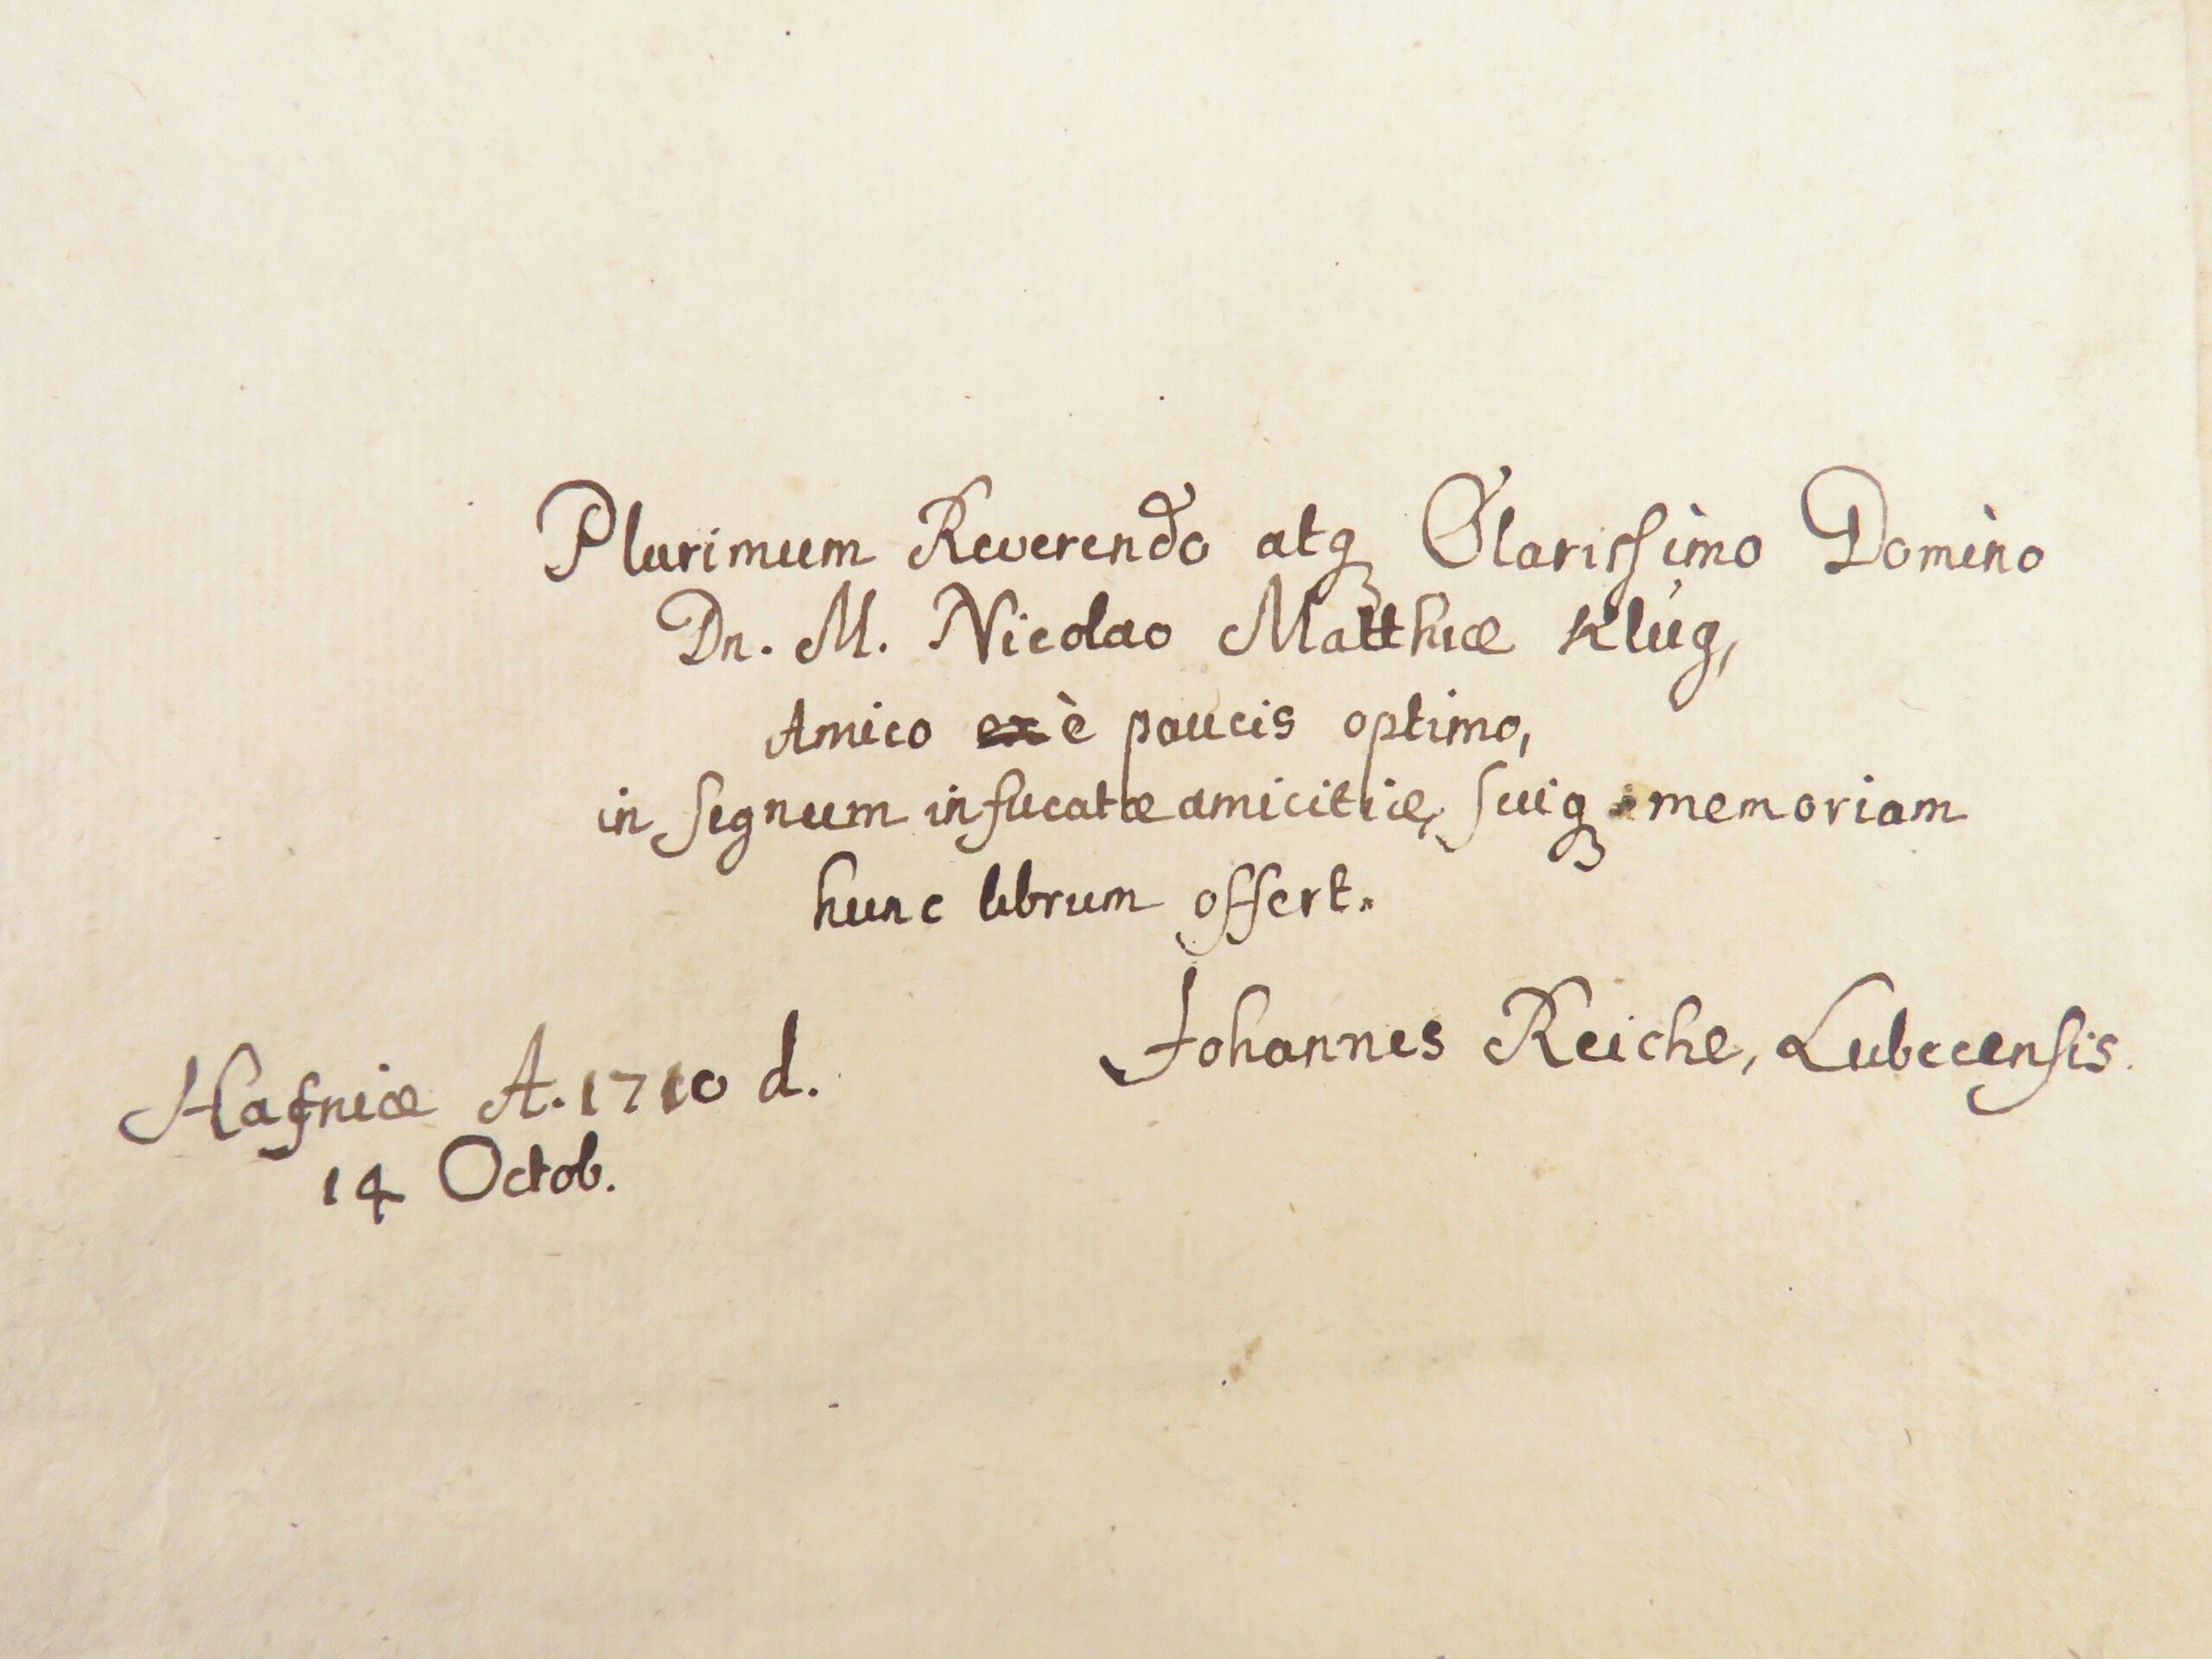 Plurimum Reverendo atq; Clarissimo Domino
Dn. M. Nicolao Matthiæ Klúg,
Amico ex è paucis optimo,
in segnum infucatæ amicitiæ, suiq; memoriam
hunc librum offert.
Johannes Reiche, Lubecensis.
Hafniæ A. 1710 d.
14 Octob.